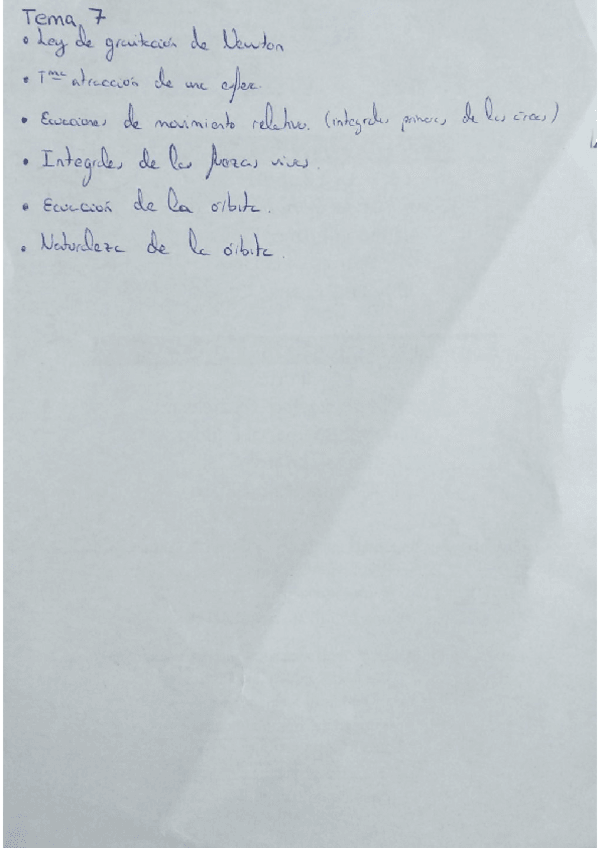 Tema 7
• Ley de gravitación de Newton
• Tma atracción de una esfera.
• Ecuaciones de movimiento relativo. (integrales primeras de las áreas)
• Integrales de las fuerzas vivas.
• Ecuación de la órbita.
• Naturaleza de la órbita.